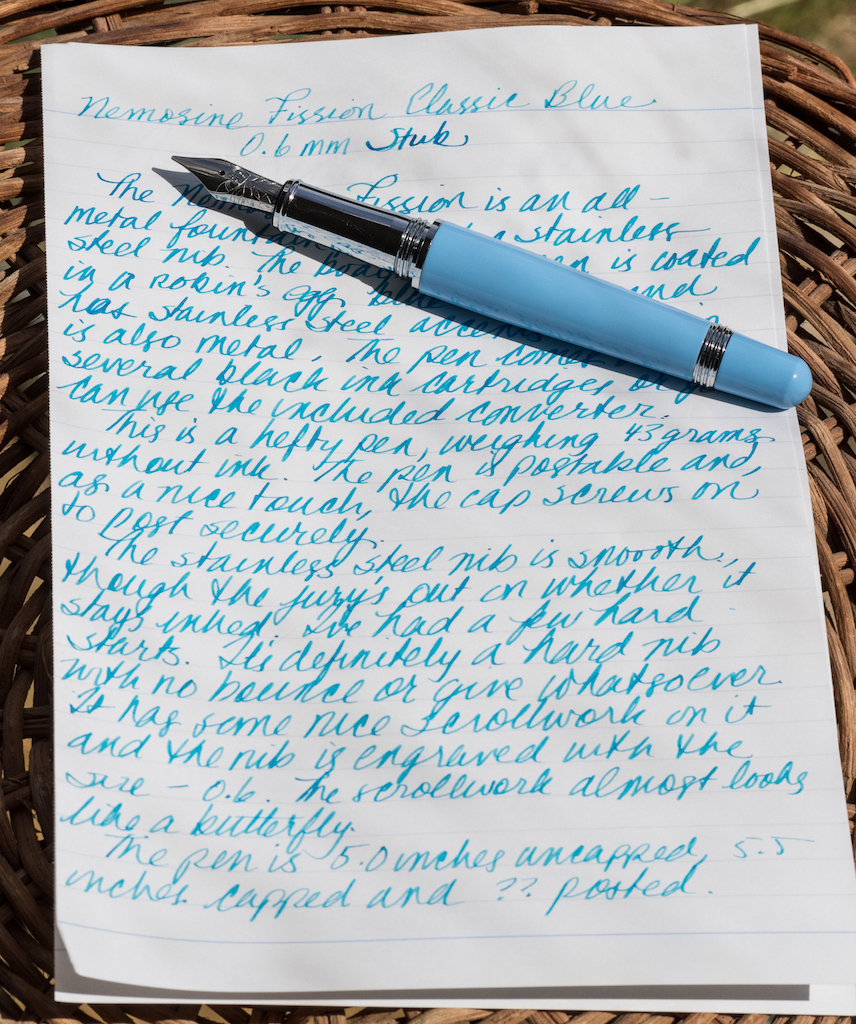 Nemosine Fission Classic Blue
0.6 mm Stub
The Fission is an all-
metal stainless
steel nib. The is coated
in a robin's egg and
has stainless steel
is also metal. The pen
several black ink cartridges or
can use the included converter.
This is a hefty pen, weighing 43 grams
without ink. The pen is postable and,
as a nice touch, the cap screws on
to post securely.
The stainless steel nib is smooth,
though the jury's out on whether it
stays inked. I've had a few hard
starts. It's definitely a hard nib
with no bounce or give whatsoever.
It has some nice scrollwork on it
and the nib is engraved with the
size - 0.6. The scrollwork almost looks
like a butterfly.
The pen is 5.0 inches uncapped, 5.5
inches capped and ?? posted.